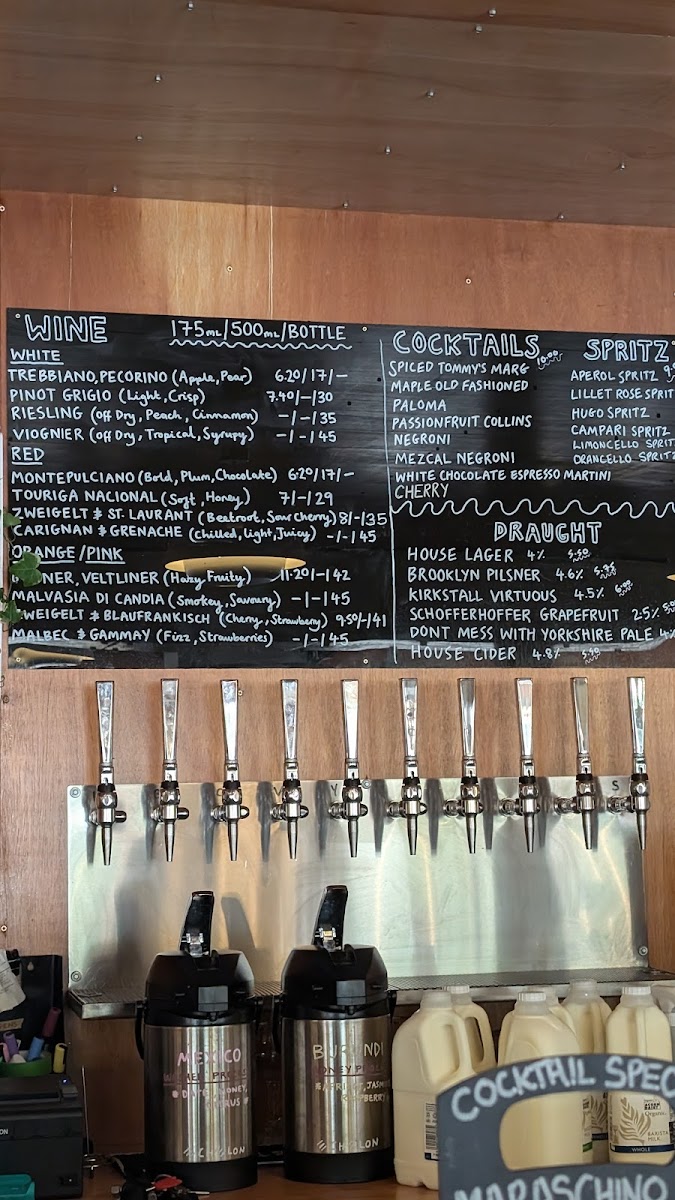 WINE 175ML/500ML/BOTTLE
WHITE
TREBBIANO, PECORINO (Apple, Pear) 6.20/17/-
PINOT GRIGIO (Light, Crisp) 7.40/-/30
RIESLING (Off Dry, Peach, Cinnamon) -/-/35
VIOGNIER (Off Dry, Tropical, Syrupy) -/-/45
RED
MONTEPULCIANO (Bold, Plum, Chocolate) 6.20/17/-
TOURIGA NACIONAL (Soft, Honey) 7/-/29
ZWEIGELT & ST. LAURANT (Beatroot, Sour Cherry) 8/-/35
CARIGNAN & GRENACHE (Chilled, Light, Juicy) -/-/45
ORANGE/PINK
VELTLINER (Hazy, Fruity) 11.20/-/42
MALVASIA DI CANDIA (Smokey, Savoury) -/-/45
ZWEIGELT & BLAUFRANKISCH (Cherry, Strawberry) 9.50/-/41
MALBEC & GAMMAY (Fizz, Strawberries) -/-/45
COCKTAILS 10.00
SPICED TOMMY'S MARG
MAPLE OLD FASHIONED
PALOMA
PASSIONFRUIT COLLINS
NEGRONI
MEZCAL NEGRONI
WHITE CHOCOLATE ESPRESSO MARTINI
CHERRY
SPRITZ
APEROL SPRITZ
LILLET ROSE SPRIT
HUGO SPRITZ
CAMPARI SPRITZ
LIMONCELLO SPRIT
ORANCELLO SPRITZ
DRAUGHT
HOUSE LAGER 4% 5.50
BROOKLYN PILSNER 4.6% 5.95
KIRKSTALL VIRTUOUS 4.5% 6.00
SCHOFFERHOFFER GRAPEFRUIT 2.5%
DONT MESS WITH YORKSHIRE PALE 4%
HOUSE CIDER 4.8% 5.50
MEXICO
BURUNDI
COCKTAIL SPEC
MARASCHINO
Organic
BARISTA
MILK
WHOLE